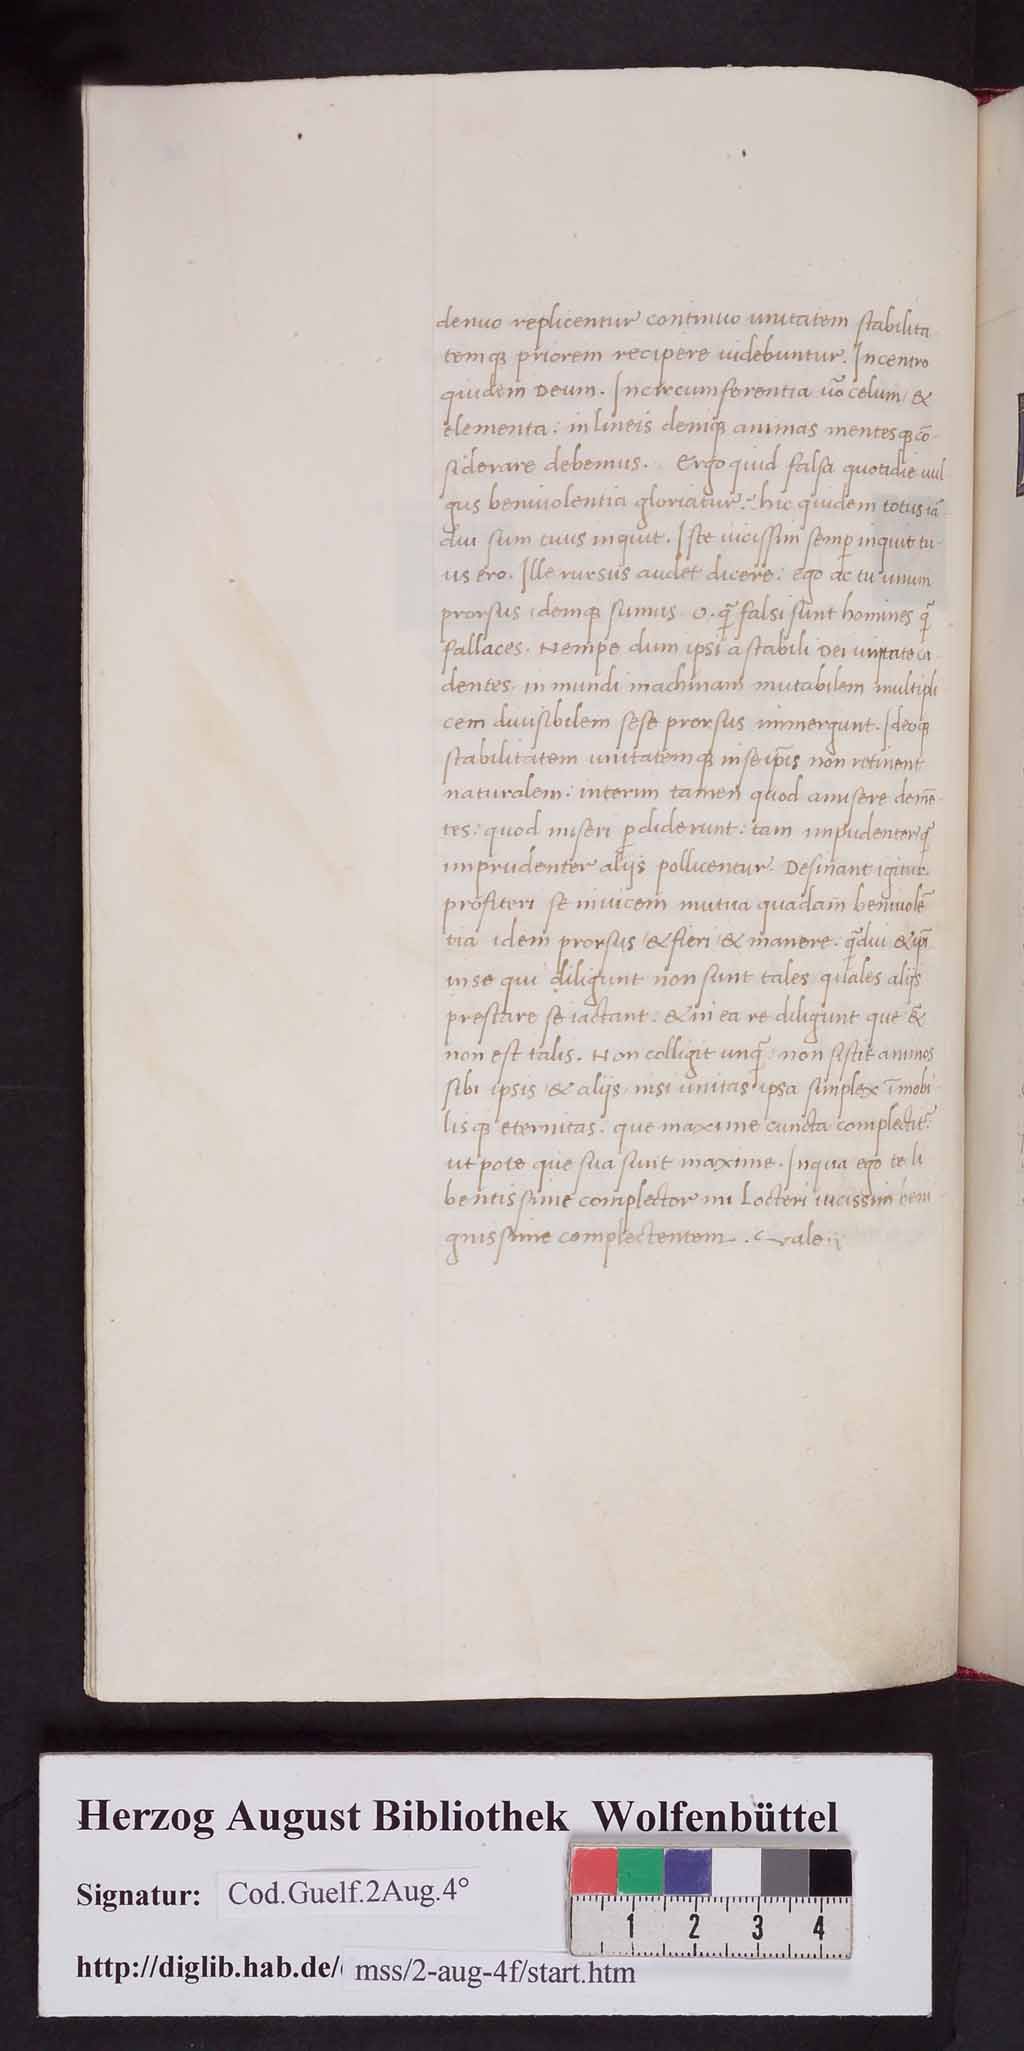 denuo replicentur continuo unitatem stabilita
temq₃ priorem recipere uidebuntur. Incentro
quidem Deum. Incircumferentia uo᷃ celum / &
elementa: in lineis deniq₃ animas mentesq₃ cō-
siderare debemus. Ergo quid falsa quotidie uul
gus beniuolentia gloriatur. hic quidem totus iā
diu sum tuus inquit. Iste uicissim semp̱ inquit tu-
us ero. Ille rursus audet dicere: ego ac tu unum
prorsus idemq₃ sumus. O. q̄ falsi sunt homines q̄
fallaces. Nempe dum ipsi a stabili Dei unitate ca
dentes. in mundi machinam mutabilem multipli
cem diuisibilem sese prorsus immergunt. Ideoq₃
stabilitatem unitatemq₃ in se ip̄is non retinent
naturalem: interim tamen quod amisere demē-
tes: quod miseri p̱diderunt: tam impudenter q̄
imprudenter alijs pollicentur. Desinant igitur
profiteri se inuicem mutua quadam beniuolē
tia idem prorsus / & fieri / & manere: q̄diu & ip̄i
in se qui diligunt non sunt tales quales alijs
prestare se iactant: & in ea re diligunt que &̄
non est talis. Non colligit unq̄: non sistit animos
sibi ipsis / & alijs / nisi unitas ipsa simplex īmobi
lisq₃ eternitas. que maxime cuncta complectit᷑:
ut pote que sua sunt maxime. Inqua ego te li
bentissime complector mi Locteri uicissim beni
gnissime complectentem. Vale.
Herzog August Bibliothek Wolfenbüttel
Signatur: Cod.Guelf.2Aug.4°
1 2 3 4
http://diglib.hab.de/ mss/2-aug-4f/start.htm